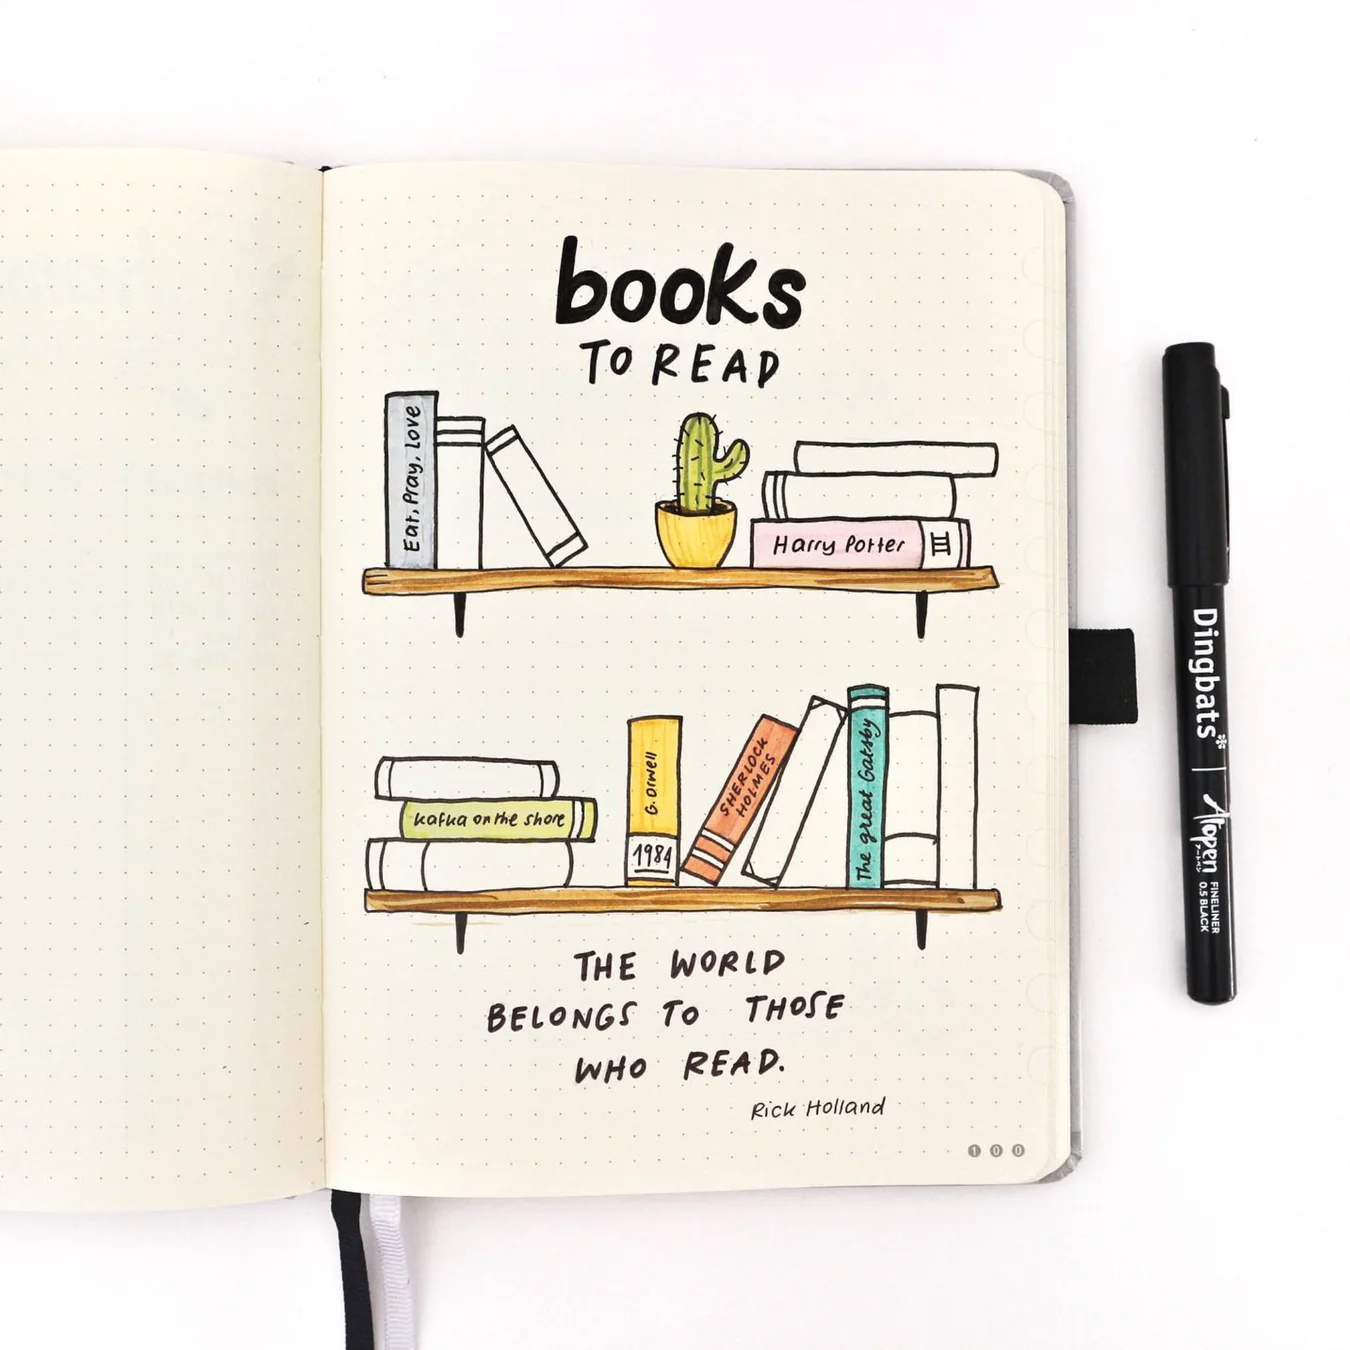 books
TO READ
Eat, Pray, Love
Harry Potter
III
kafka on the shore
G. Orwell
1984
SHERLOCK
HOLMES
The great Gatsby
THE WORLD
BELONGS TO THOSE
WHO READ.
Rick Holland
100
Dingbats* | Atopen FINELINER
アートペン 0.5 BLACK